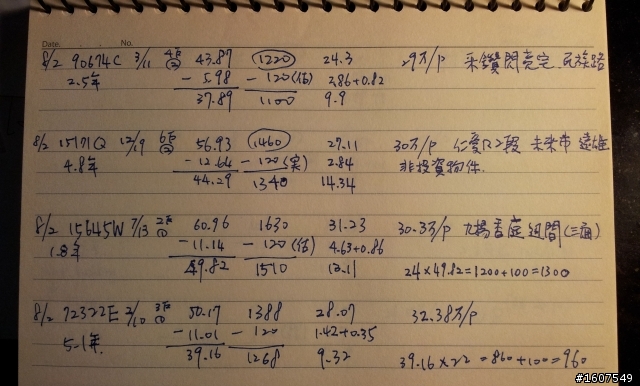 Date. No.
8/2 90674C 3/11 4F 43.87 1220 24.3 29万/P 采鑽閃亮宅 民族路
2.5年 -5.98 -120(估) 2.86+0.82
37.89 1100 9.9
8/2 15171Q 12/19 6F 56.93 1460 27.11 30万/P 仁愛R2段 未來市 遠雄
4.8年 -12.64 -120(実) 2.84 非投資物件.
44.29 1340 14.34
8/2 15645W 7/13 2F 60.96 1630 31.23 30.3万/P 九揚香庭 迎間(三面)
1.8年 -11.14 -120(估) 4.63+0.86
49.82 1510 13.11 24×49.82=1200+100=1300
8/2 72322E 2/10 3F 50.17 1388 28.07 32.38万/P
5.1年. -11.01 -120 1.42+0.35
39.16 1268 9.32 39.16×22=860+100=960
#1607549